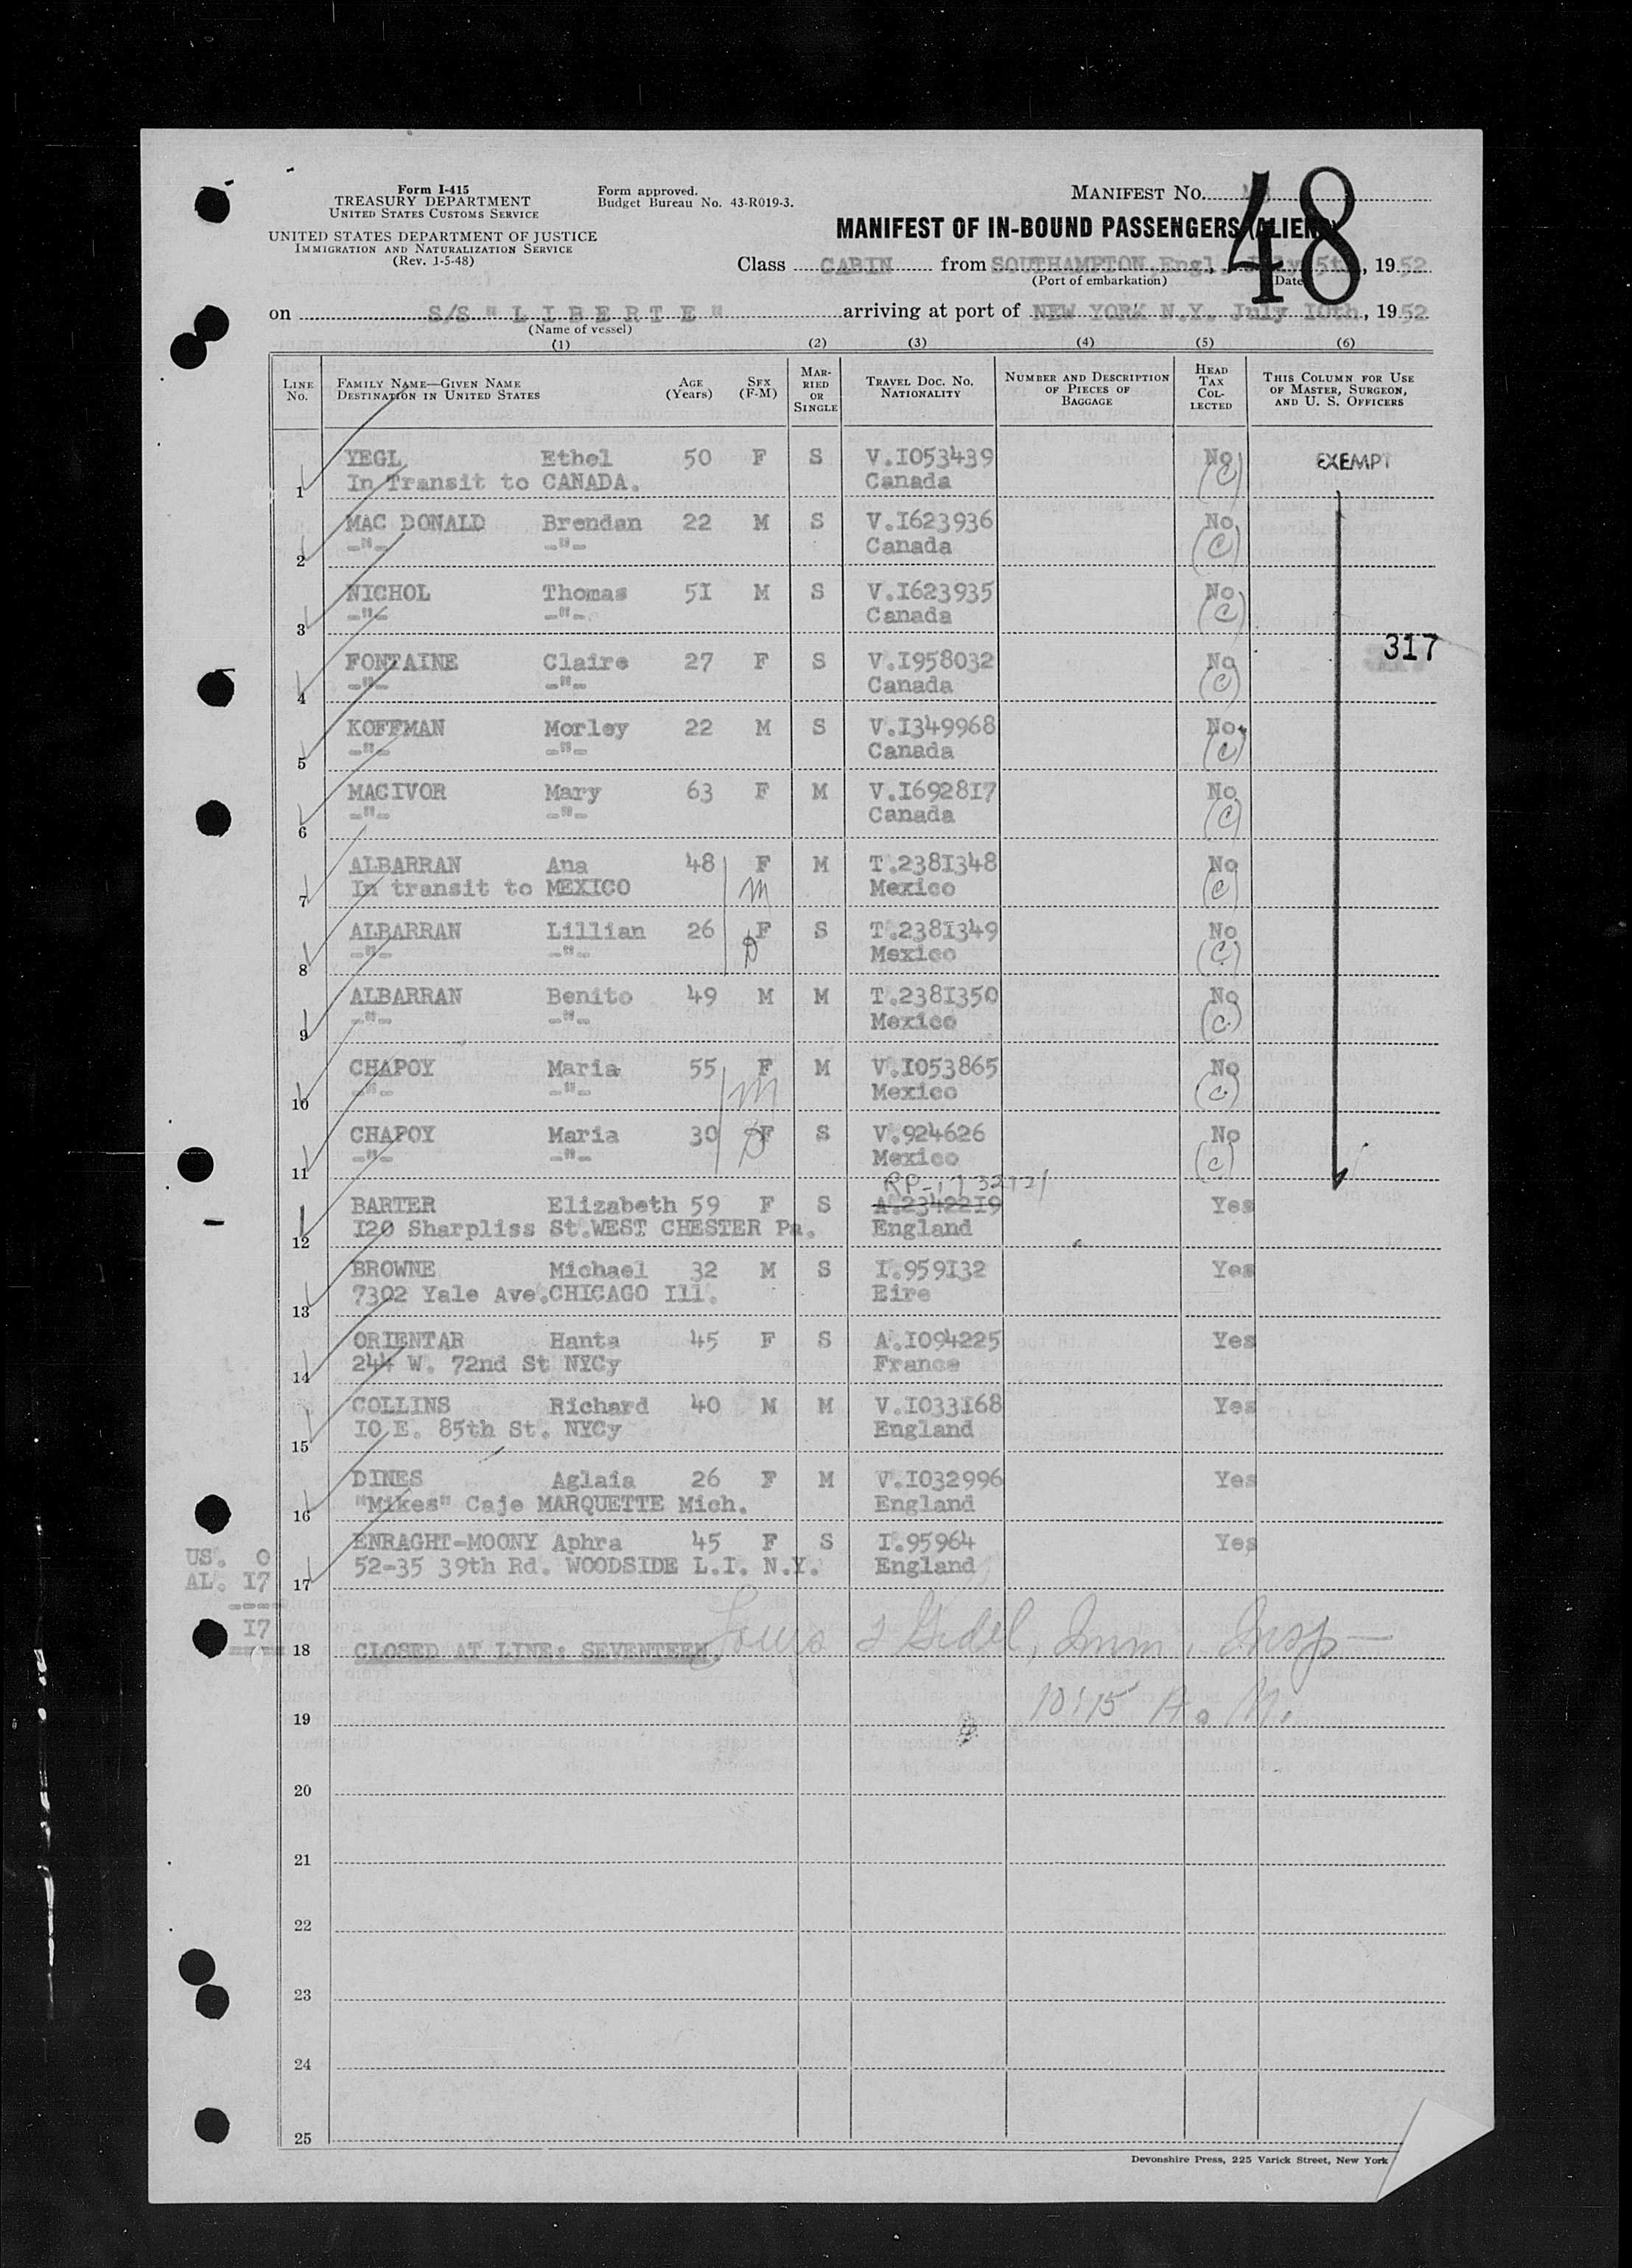 Form I-415
TREASURY DEPARTMENT
UNITED STATES CUSTOMS SERVICE
UNITED STATES DEPARTMENT OF JUSTICE
IMMIGRATION AND NATURALIZATION SERVICE
(Rev. 1-5-48)
Form approved.
Budget Bureau No. 43-R019-3.
MANIFEST No.
48
MANIFEST OF IN-BOUND PASSENGERS (ALIENS)
Class CABIN from SOUTHAMPTON,Engl., July 5th, 1952
(Port of embarkation) (Date)
on S/S "L I B E R T E" arriving at port of NEW YORK N.Y. July 10th, 1952
(Name of vessel)
(1) (2) (3) (4) (5) (6)
LINE No. FAMILY NAME—GIVEN NAME DESTINATION IN UNITED STATES AGE (Years) SEX (F-M) MARRIED OR SINGLE TRAVEL DOC. NO. NATIONALITY NUMBER AND DESCRIPTION OF PIECES OF BAGGAGE HEAD TAX COLLECTED THIS COLUMN FOR USE OF MASTER, SURGEON, AND U. S. OFFICERS
YEGL Ethel 50 F S V.I053439 No EXEMPT
1 In Transit to CANADA. Canada (C)
MAC DONALD Brendan 22 M S V.I623936 No
2 -"- -"- Canada (C)
NICHOL Thomas 5I M S V.I623935 No
3 -"- -"- Canada (C)
317
FONTAINE Claire 27 F S V.I958032 No
4 -"- -"- Canada (C)
KOFFMAN Morley 22 M S V.I349968 No
5 -"- -"- Canada (C)
MACIVOR Mary 63 F M V.I6928I7 No
6 -"- -"- Canada (C)
ALBARRAN Ana 48 F M T.238I348 No
7 In transit to MEXICO M Mexico (C)
ALBARRAN Lillian 26 F S T.238I349 No
8 -"- -"- D Mexico (C)
ALBARRAN Benito 49 M M T.238I350 No
9 -"- -"- Mexico (C)
CHAPOY Maria 55 F M V.I053865 No
10 -"- -"- M Mexico (C)
CHAPOY Maria 30 F S V.924626 No
11 -"- -"- D Mexico (C)
BARTER Elizabeth 59 F S A.23422I9 Yes
12 I20 Sharpliss St.WEST CHESTER Pa. England
BROWNE Michael 32 M S I.959I32 Yes
13 7302 Yale Ave.CHICAGO Ill. Eire
ORIENTAR Hanta 45 F S A.I094225 Yes
14 244 W. 72nd St NYCy France
COLLINS Richard 40 M M V.I033I68 Yes
15 IO E. 85th St. NYCy England
DINES Aglaia 26 F M V.I032996 Yes
16 "Mikes" Caje MARQUETTE Mich. England
ENRAGHT-MOONY Aphra 45 F S I.95964 Yes
17 52-35 39th Rd. WOODSIDE L.I. N.Y. England
US. 0
AL. I7
----
I7
====
18 CLOSED AT LINE: SEVENTEEN. Imm. Insp
19 10:15 A. M.
20
21
22
23
24
25
Devonshire Press, 225 Varick Street, New York